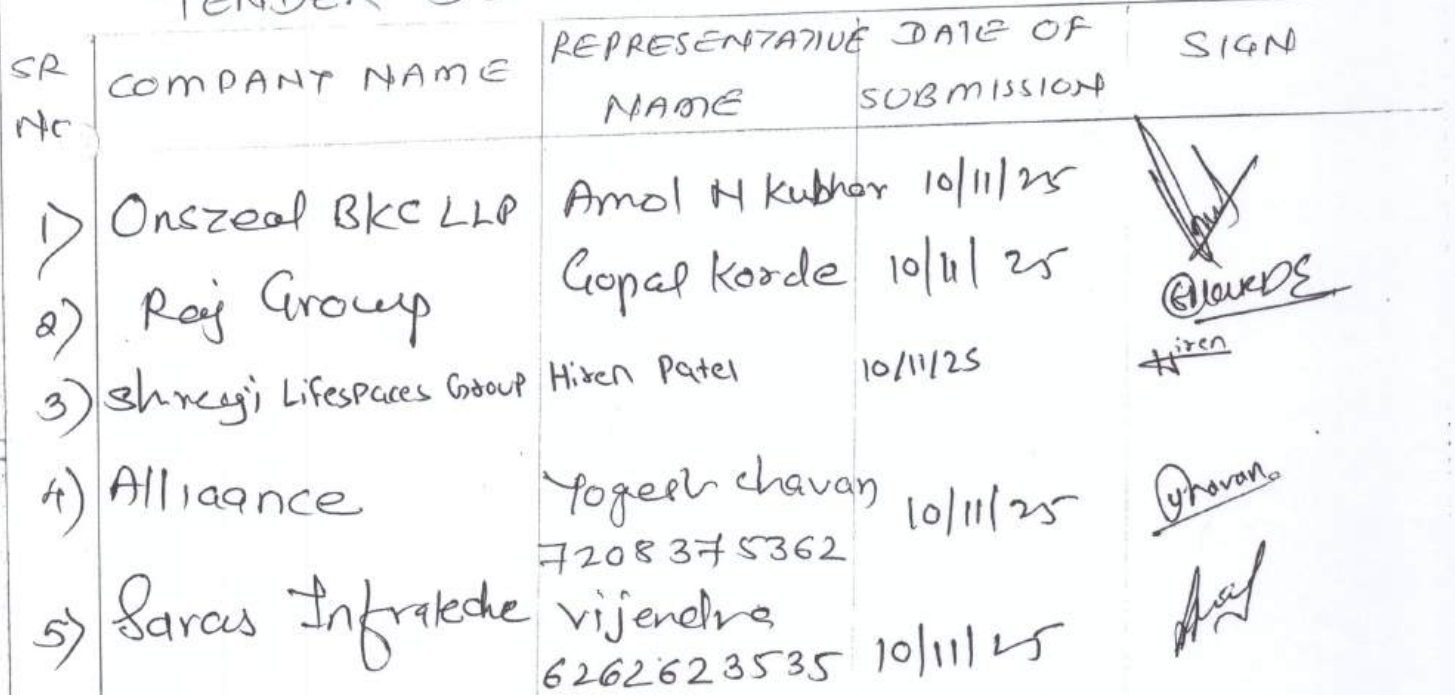 TENDER
SR NO COMPANY NAME REPRESENTATIVE NAME DATE OF SUBMISSION SIGN
1) Onszeal BKC LLP Amol N Kubhar 10/11/25
2) Raj Group Gopal Korde 10/11/25 GNKorDE
3) Shreeji Lifespaces Group Hiren Patel 10/11/25 Hiren
4) Alliaance Yogesh Chavan 7208375362 10/11/25 ychavan.
5) Saras Infrateche vijendra 6262623535 10/11/25